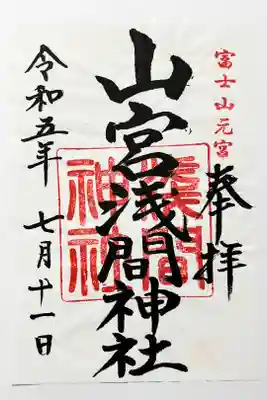 富士山元宮
奉拝
山宮浅間神社
浅間神社
令和五年
七月十一日